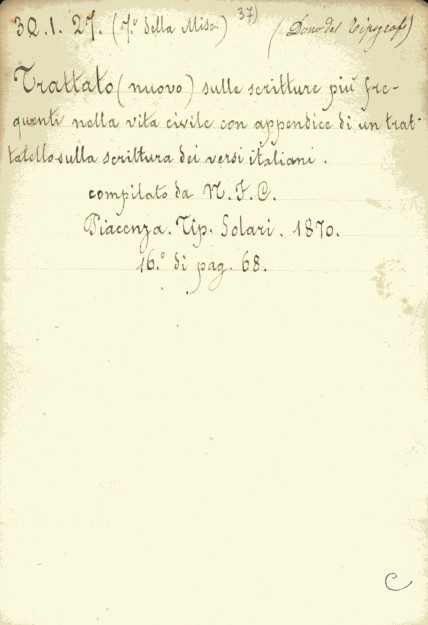 37)
3Q.1.27. (7.º della Misc.) (Dono del Tipografo)
Trattato (nuovo) sulle scritture più fre-
quenti nella vita civile con appendice di un trat-
tatello sulla scrittura dei versi italiani.
compilato da N. F. C.
Piacenza. Tip. Solari. 1870.
16.º di pag. 68.
C